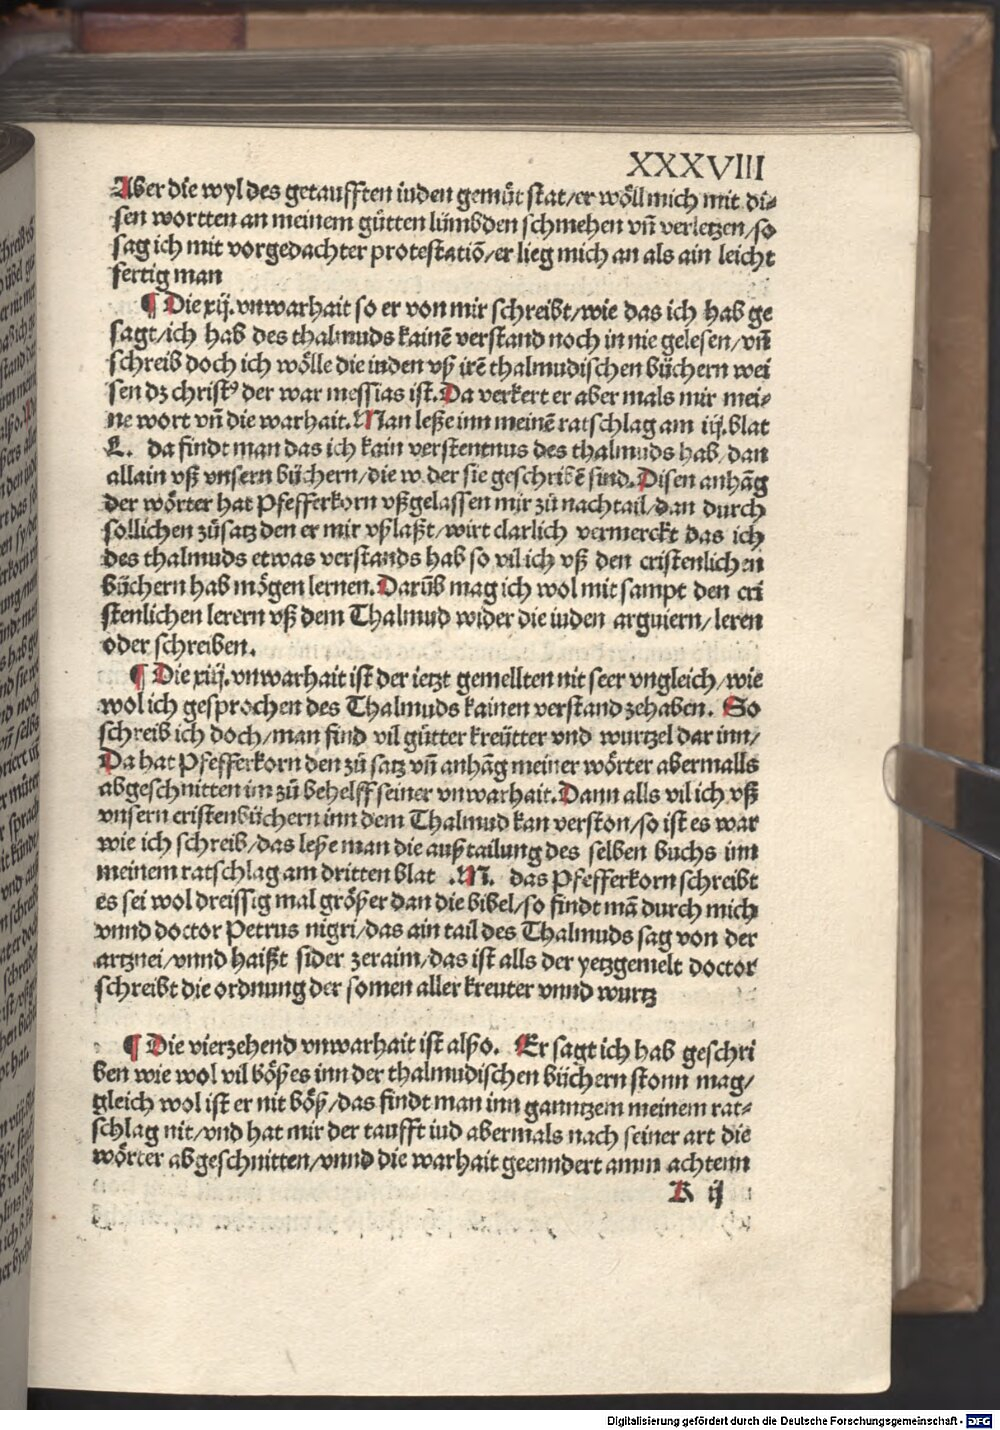 XXXVIII
Aber die wyl des getaufften iuden gemüt stat/er wöll mich mit di⸗
sen wortten an meinem gůtten lümbden schmehen vñ verletzen/so
sag ich mit vorgedachter protestatiō/er lieg mich an als ain leicht
fertig man
¶ Die xij. vnwarhait so er von mir schreibt/wie das ich hab ge
sagt/ich hab des thalmuds kainē verstand noch in nie gelesen/vñ
schreib doch ich wölle die iuden vß irē thalmudischen bůchern wei
sen dz christꝰ der war messias ist. Da verkert er aber mals mir mei⸗
ne wort vñ die warhait. Man leße inn meinē ratschlag am iij. blat
E. da findt man das ich kain verstentnus des thalmuds hab/dan
allain vß vnsern bůchern/die w der sie geschribē sind. Disen anhāg
der wörter hat Pfefferkorn vßgelassen mir zů nachtail/dan durch
sollichen zůsatz den er mir vßlaßt/wirt clarlich vermerckt das ich
des thalmuds etwas verstands hab so vil ich vß den cristenlichen
bůchern hab mögen lernen. Darūb mag ich wol mit sampt den cri
stenlichen lerern vß dem Thalmud wider die iuden arguiern/leren
oder schreiben.
¶ Die xiij. vnwarhait ist der ietzt gemellten nit seer vngleich/wie
wol ich gesprochen des Thalmuds kainen verstand zehaben. So
schreib ich doch/man find vil gůtter kreütter vnd wurtzel dar inn/
Da hat Pfefferkorn den zů satz vñ anhāg meiner wörter abermalls
abgeschnitten im zů behelff seiner vnwarhait. Dann alls vil ich vß
vnsern cristenbůchern inn dem Thalmud kan verston/so ist es war
wie ich schreib/das leße man die außtailung des selben buchs inn
meinem ratschlag am dritten blat .M. das Pfefferkorn schreibt
es sei wol dreissig mal größer dan die bibel/so findt mā durch mich
vnnd doctor Petrus nigri/das ain tail des Thalmuds sag von der
artznei/vnnd haißt sider zeraim/das ist alls der yetzgemelt doctor
schreibt die ordnung der somen aller kreuter vnnd wurtz
¶ Die vierzehend vnwarhait ist alßo. Er sagt ich hab geschri
ben wie wol vil bößes inn der thalmudischen bůchern stonn mag/
gleich wol ist er nit böß/das findt man inn ganntzem meinem rat⸗
schlag nit/vnd hat mir der taufft iud abermals nach seiner art die
wörter abgeschnitten/vnnd die warhait geenndert amm achtenn
K ij
Digitalisierung gefördert durch die Deutsche Forschungsgemeinschaft - DFG